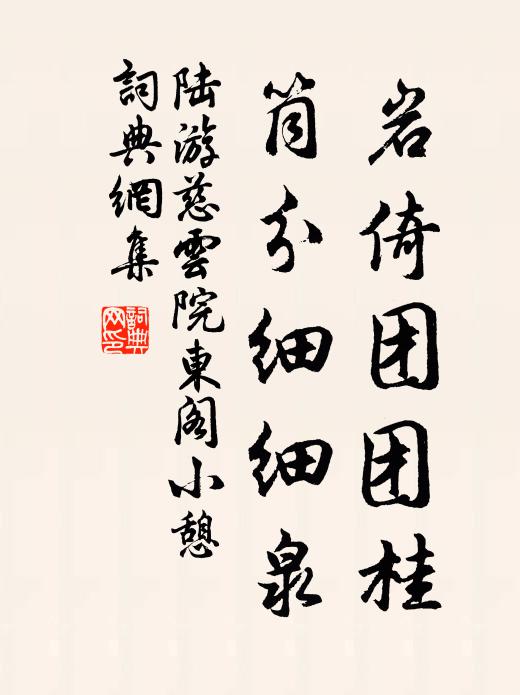 岩倚团团桂
筒分细细泉
陆游慈雲院東阁小憩
詞典網集
詞典网印